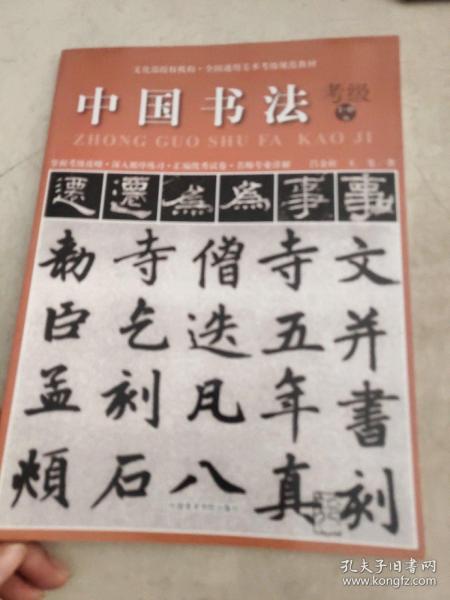 文化部授权机构·全国通用美术考级规范教材
中国书法考级
ZHONG GUO SHU FA KAO JI
遷 遷 為 為 事 事
勅 寺 僧 寺 文
臣 乞 迭 五 并
孟 刻 凡 年 書
頻 石 八 真 刻
中国美术学院出版社
孔夫子旧书网
www.kongfz.com